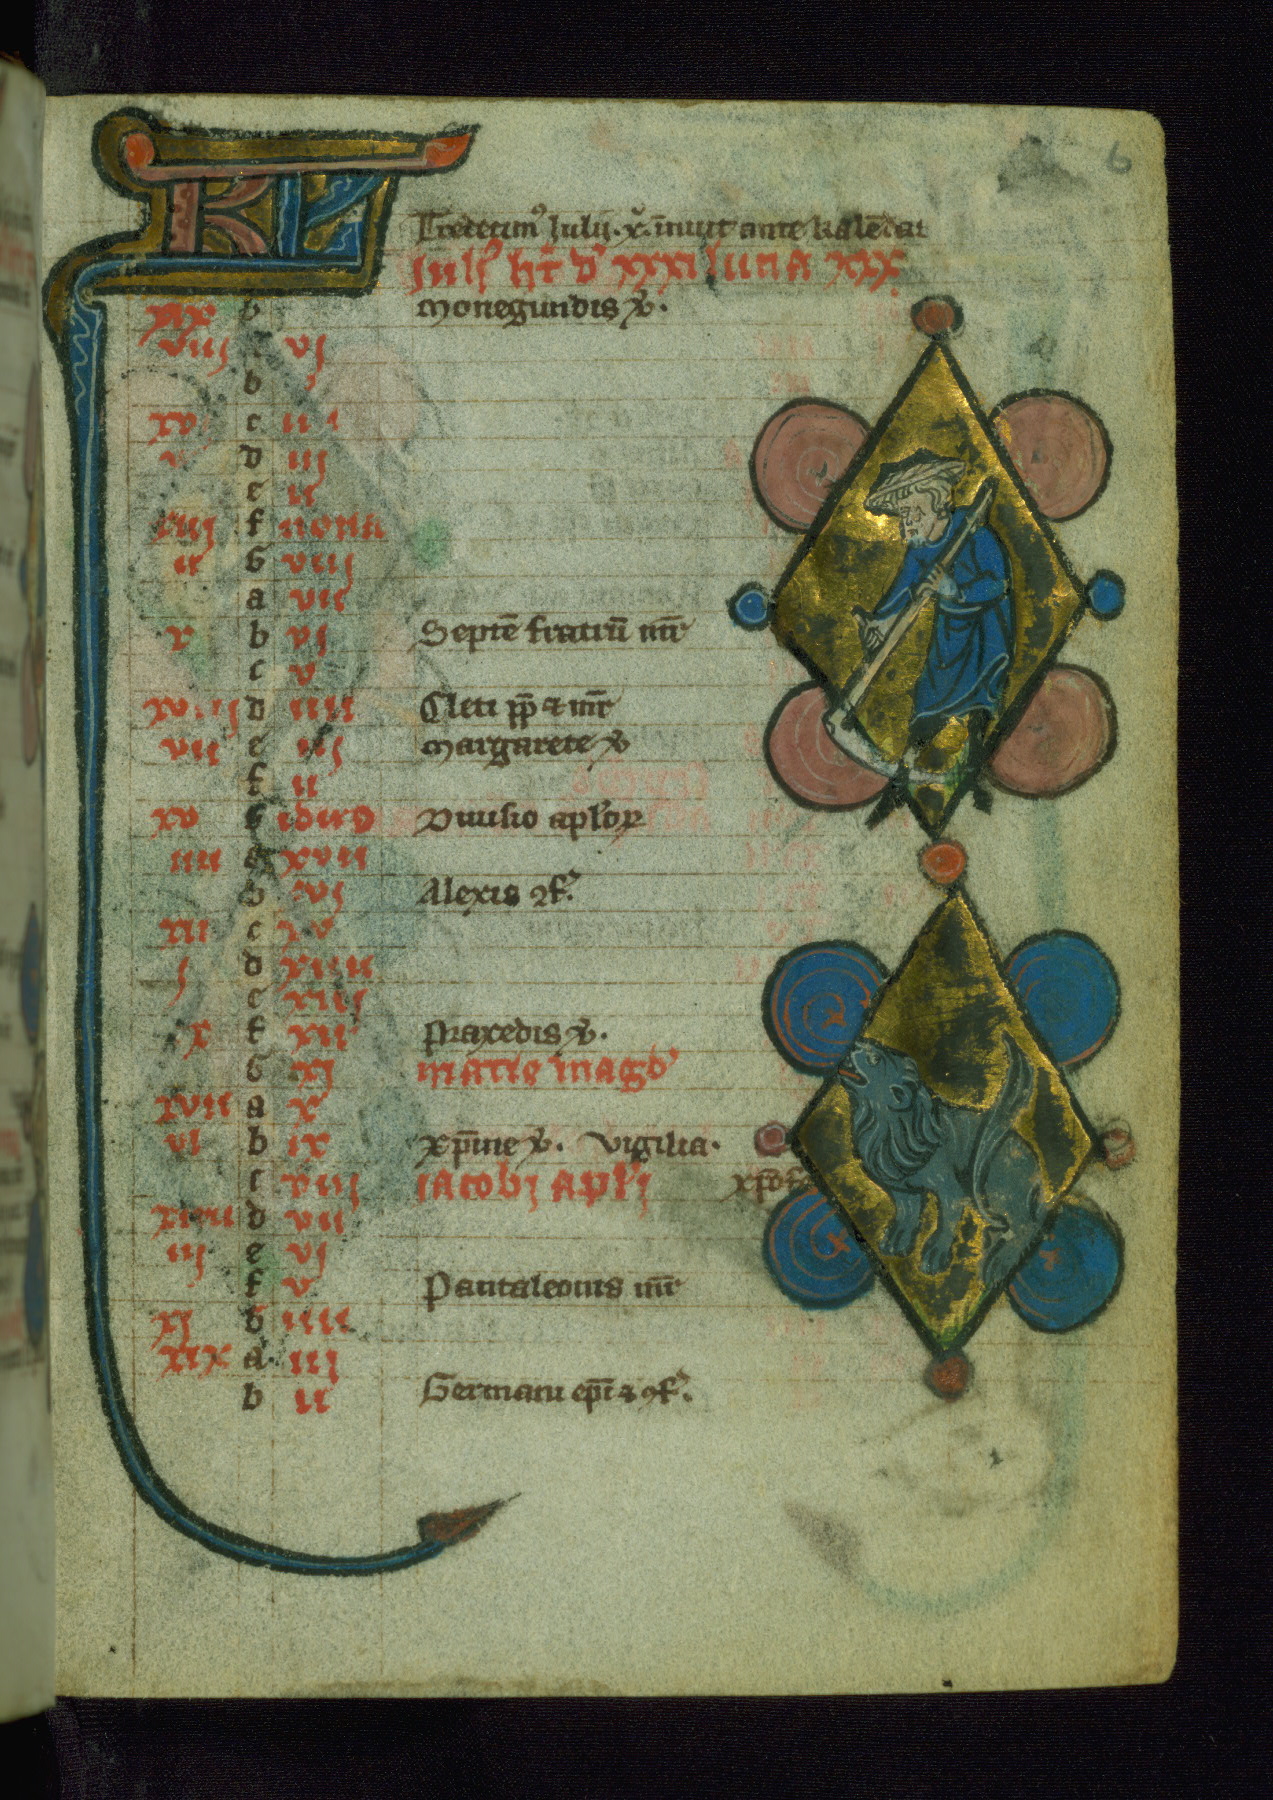 6
KL
Tredecimus Julii. x. inuit ante kalendat
Juls ht d xxxi luna xxx
xix b Monegundis v.
viij vj
b
xv c iiij
v d iij
e ii
xiij f nonas
ii G viij
a vii
x b vj Septe fratru mr
c v
xviij d iiii Cleti pp & mr
vii e iij Margarete v
f ii
xv G idus Diuisio aplor
iiii a xvii
b xvj Alexis cf.
xii c xv
j d xiiii
e xiij
x f xii Praxedis v.
G xj marie magd
xvii a x
vi b ix xpine v. Vigilia.
c viij iacobi apli xpof
xiiii d vii
iij e vj
f v Pantaleonis mr
xj G iiii
xix a iij
b ii Germani epi & cf.